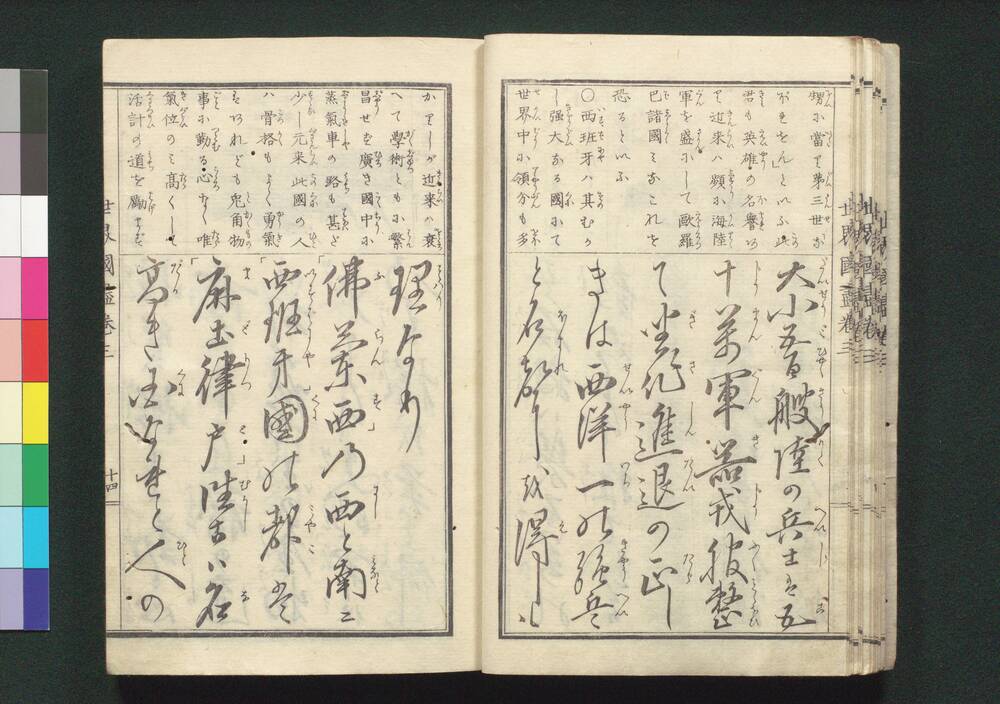 甥に當りて第三世ぶ
なぱをん」といふ此
君も英雄の名譽あ
り近来ハ頻に海陸
軍を盛にして歐羅
巴諸國ミなこれを
恐るといふ
〇西班牙ハ其むか
し強大なる國にて
世界中に領分も多
大小五百艘陸の兵士は五
十萬軍器戎服整
て坐作進退の正し
きは西洋一の強兵
と名誉を得し
かりしが近来ハ衰
へて學術ともに繁
昌せず廣き國中に
蒸氣車の路も甚ど
少し元来此國の人
ハ骨格もよく勇氣
もあれども兎角物
事に勤る心なく唯
氣位のミ高くし
活計の道を勵まず
理なり
「佛蘭西」乃西と南に
「西班牙」國の都は
「麻土律戸」陸古ハ名
高き國なれど人の
世界國盡卷三
十四
世界國盡卷三